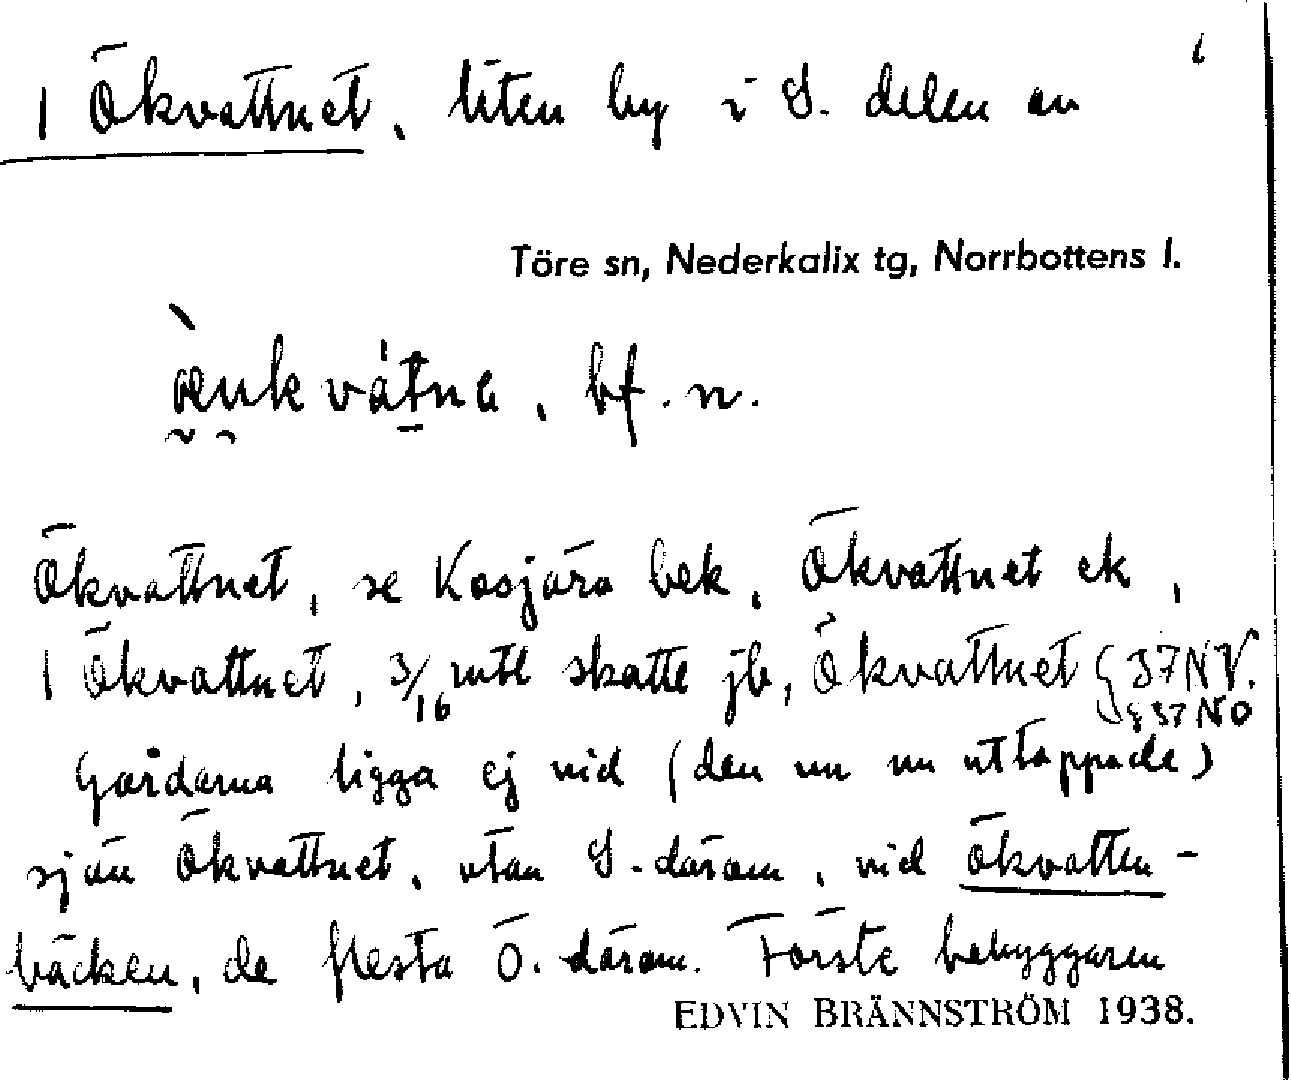 1 Ökvattnet, liten by i S. delen av
Töre sn, Nederkalix tg, Norrbottens l.
æukvátna, bf. n.
Ökvattnet, se Kosjärv bek, Ökvattnet ek,
1 Ökvattnet, 3/16 mtl skatte jb, Ökvattnet { 37 NV.
§ 37 NO
Gårdarna ligga ej vid (den nu uttappade)
sjön Ökvattnet, utan S. därom, vid Ökvatten-
bäcken, de flesta Ö. därom. Förste bebyggaren
EDVIN BRÄNNSTRÖM 1938.